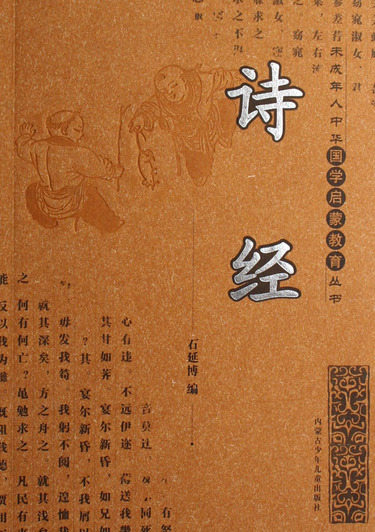 诗经
未成年人中华国学启蒙教育丛书
石延博 编
内蒙古少年儿童出版社
窈窕淑女，君
参差荇
左右流
窈窕
淑女，
求之
求之不
心有违，不远伊迩，
其甘如荠。宴尔新昏，如兄如
？宴尔新昏，不我屑以
毋发我笱。我躬不阅，遑恤我
就其深矣，方之舟之。就其浅矣
之。何有何亡？黾勉求之。凡民有
反以我为